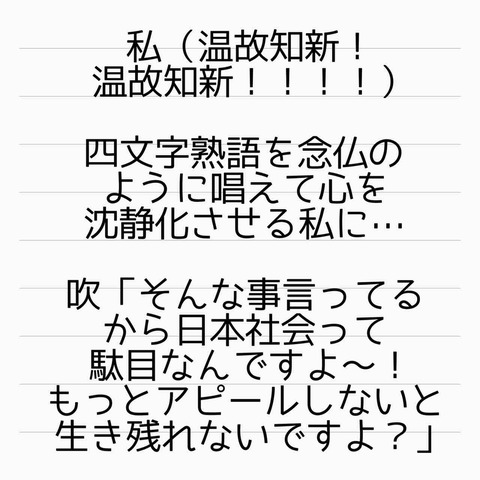 私（温故知新！
温故知新！！！！）
四文字熟語を念仏の
ように唱えて心を
沈静化させる私に…
吹「そんな事言ってる
から日本社会って
駄目なんですよ〜！
もっとアピールしないと
生き残れないですよ？」